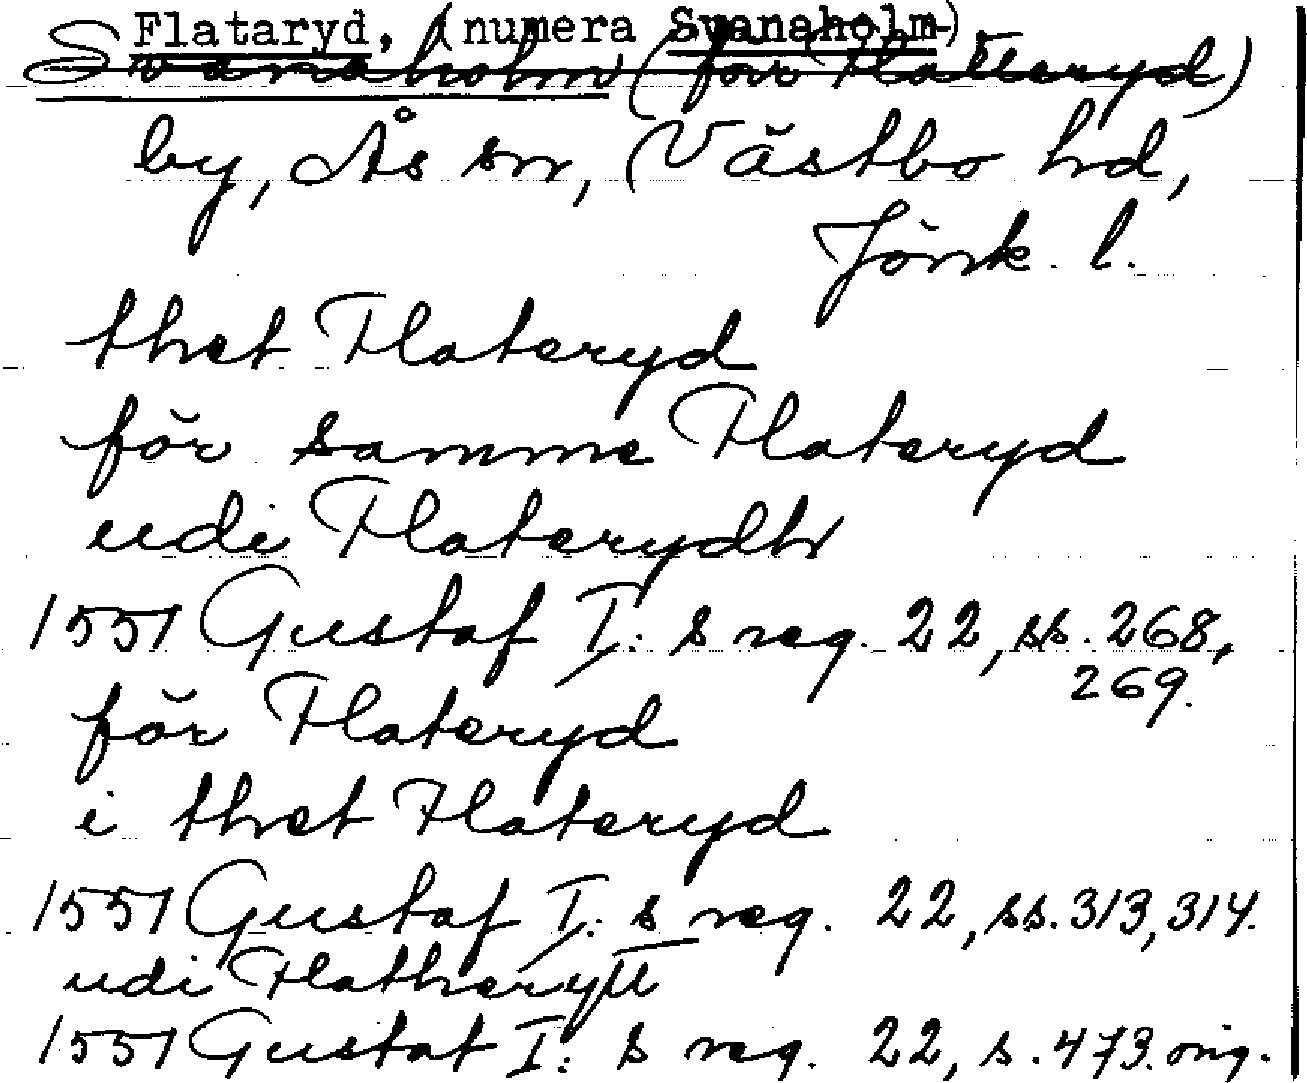 Flataryd, (numera Svanaholm)
Svanaholm (förr Flatteryd)
by, Ås sn, (Västbo hd,
Jönk. l.
thet Flateryd
för samme Flateryd
udi Flaterydh
1551 Gustaf I:s reg. 22, ss. 268,
269.
för Flateryd
i thet Flateryd
1551 Gustaf I:s reg. 22, ss. 313, 314.
udi Flatherytt
1551 Gustaf I:s reg. 22, s. 473. orig.